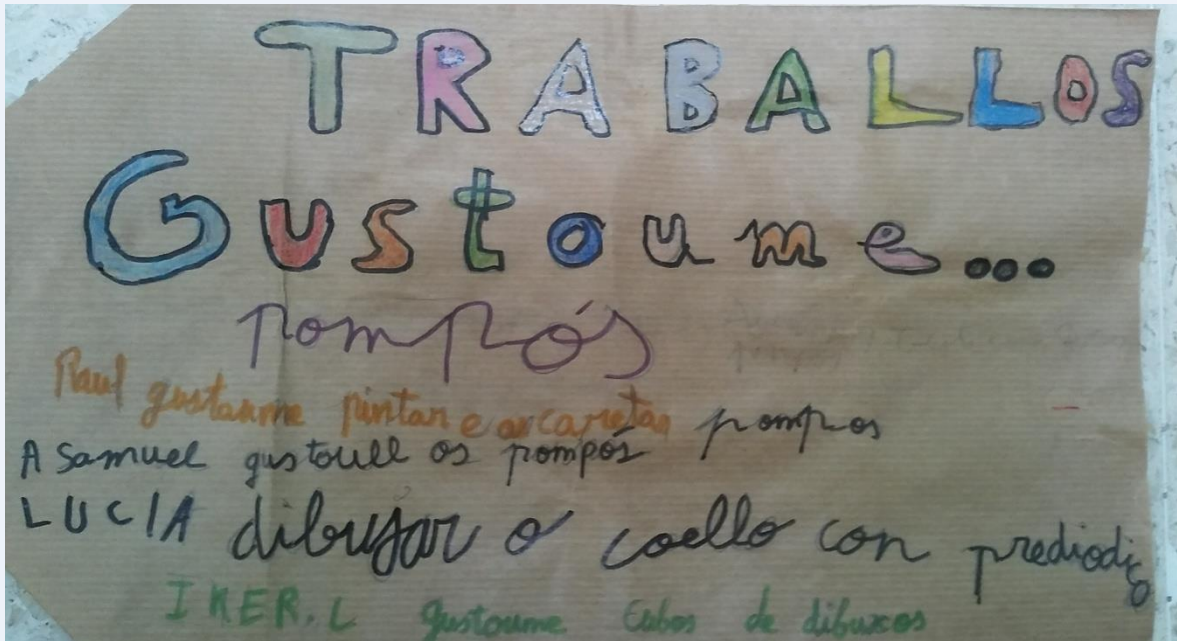 TRABALLOS
Gustoume...
pompós
Raul gustaume pintar e as caretas pompos
A Samuel gustoull os pompós
LUCIA dibujar o coello con
IKER.L gustoume de dibuxos